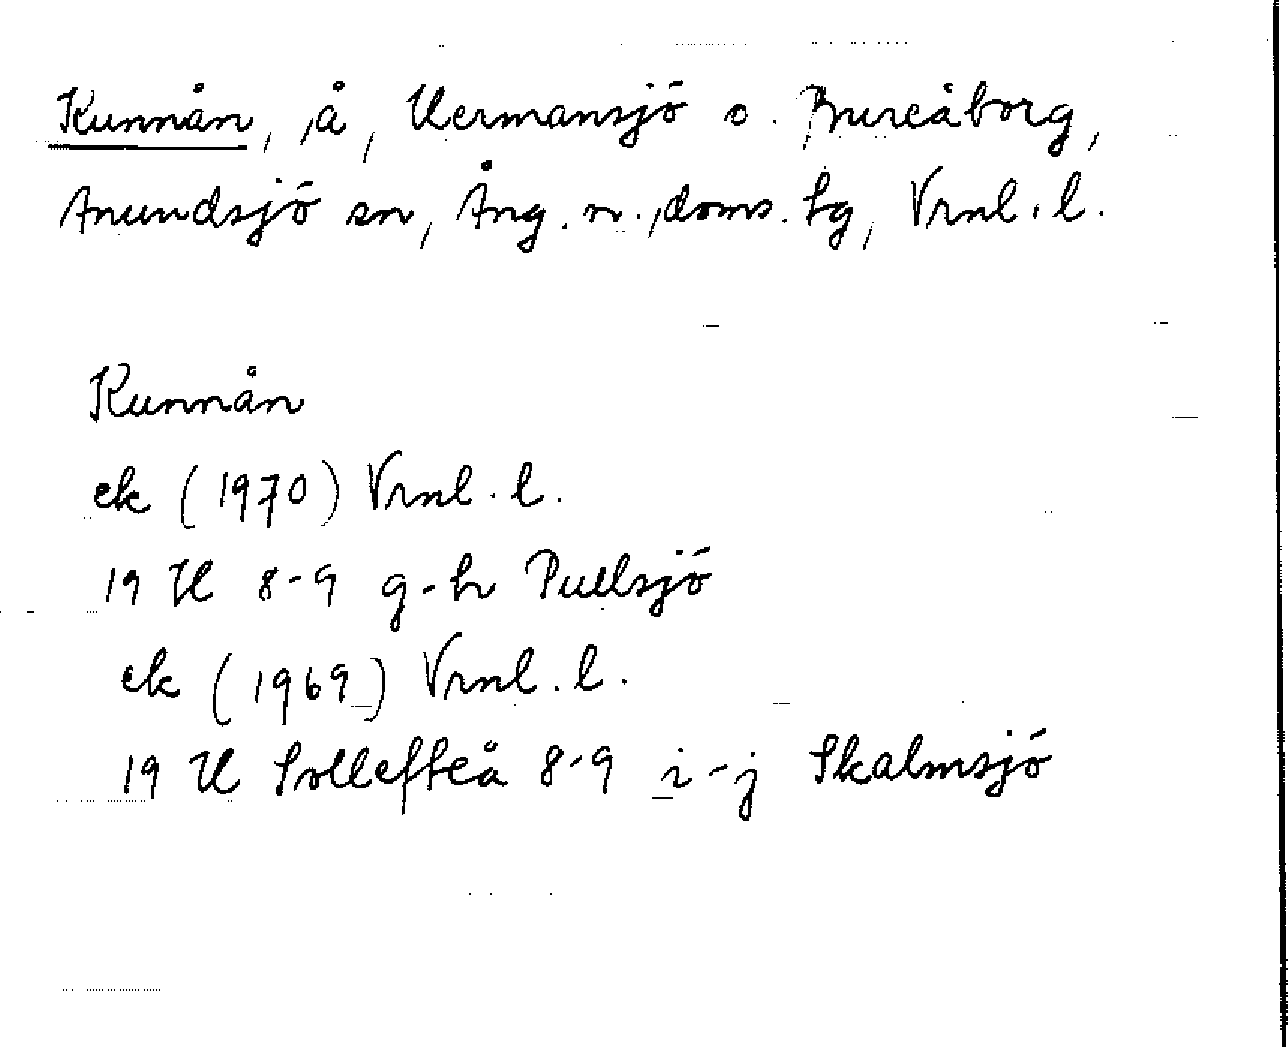 Kunnån, å, Hermansjö o. Bureåborg,
Anundsjö sn, Ång. n., doms. tg, Vrnl. l.
Kunnån
ek (1970) Vrnl. l.
19 H 8-9 g-h Pullsjö
ek (1969) Vrnl. l.
19 H Sollefteå 8-9 i-j Skalmsjö